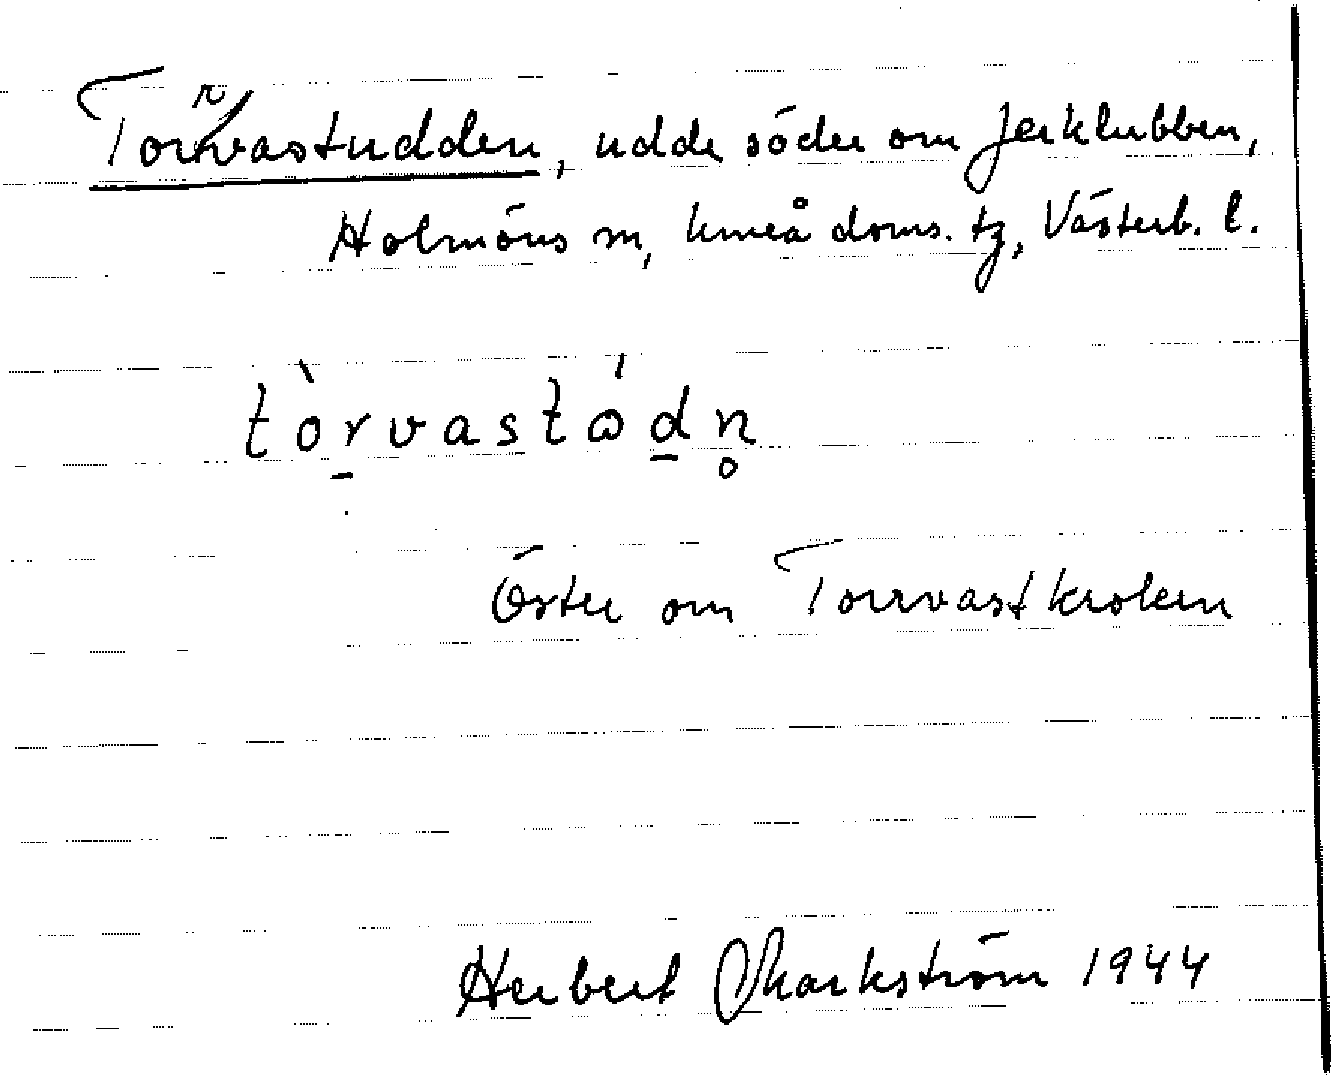 Torrvastudden, udde söder om Jerklubben,
Holmöns sn, Umeå doms. tg, Västerb. l.
tòrvastódn̥
Öster om Torrvastkroken
Herbert Markström 1944